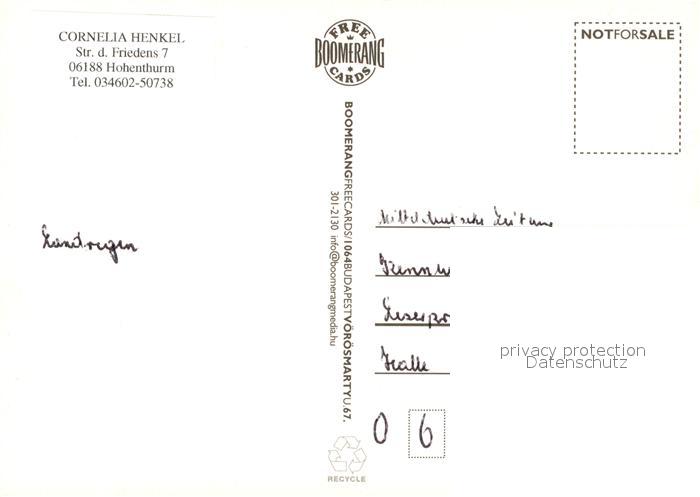 CORNELIA HENKEL
Str. d. Friedens 7
06188 Hohenthurm
Tel. 034602-50738
FREE
BOOMERANG
CARDS
NOTFORSALE
BOOMERANGFREECARDS/1064BUDAPESTVÖRÖSMARTYU.67.
301-2130 info@boomerangmedia.hu
Landregen
Mitteldeutsche Zeitung
Kennw
Leserpr
Halle
06
privacy protection
Datenschutz
RECYCLE